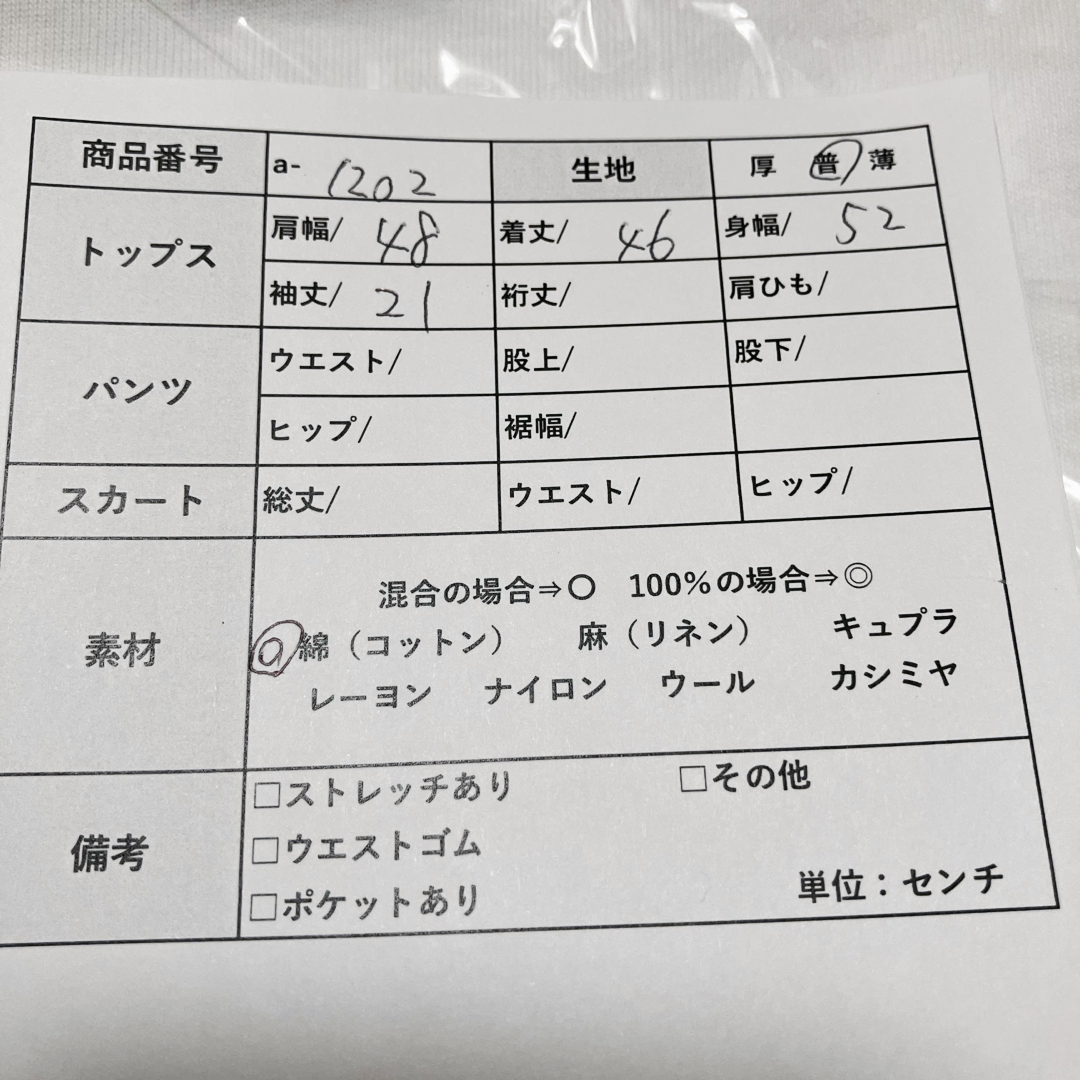 商品番号 a- 1202 生地 厚 普 薄
トップス 肩幅/ 48 着丈/ 46 身幅/ 52
袖丈/ 21 裄丈/ 肩ひも/
パンツ ウエスト/ 股上/ 股下/
ヒップ/ 裾幅/
スカート 総丈/ ウエスト/ ヒップ/
素材 混合の場合⇒〇 100%の場合⇒◎
◎ 綿（コットン） 麻（リネン） キュプラ
レーヨン ナイロン ウール カシミヤ
備考 □ストレッチあり □その他
□ウエストゴム
□ポケットあり 単位：センチ